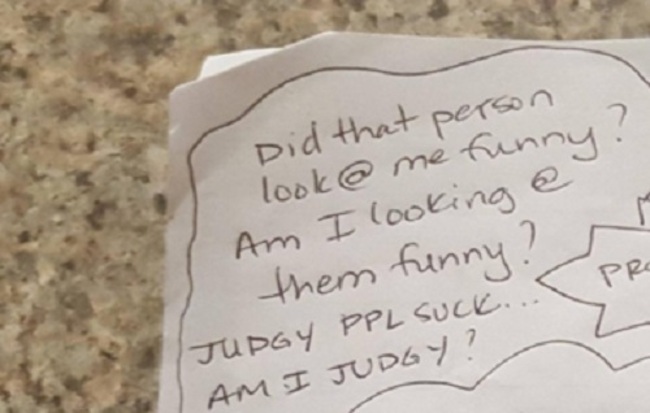 Did that person
look@ me funny?
Am I looking @
them funny?
JUDGY PPL SUCK...
AM I JUDGY?